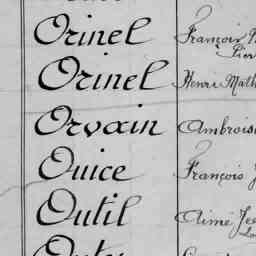 Orinel François
Orinel Henri Math
Orvain Ambrois
Ouice François J
Outil Aimé